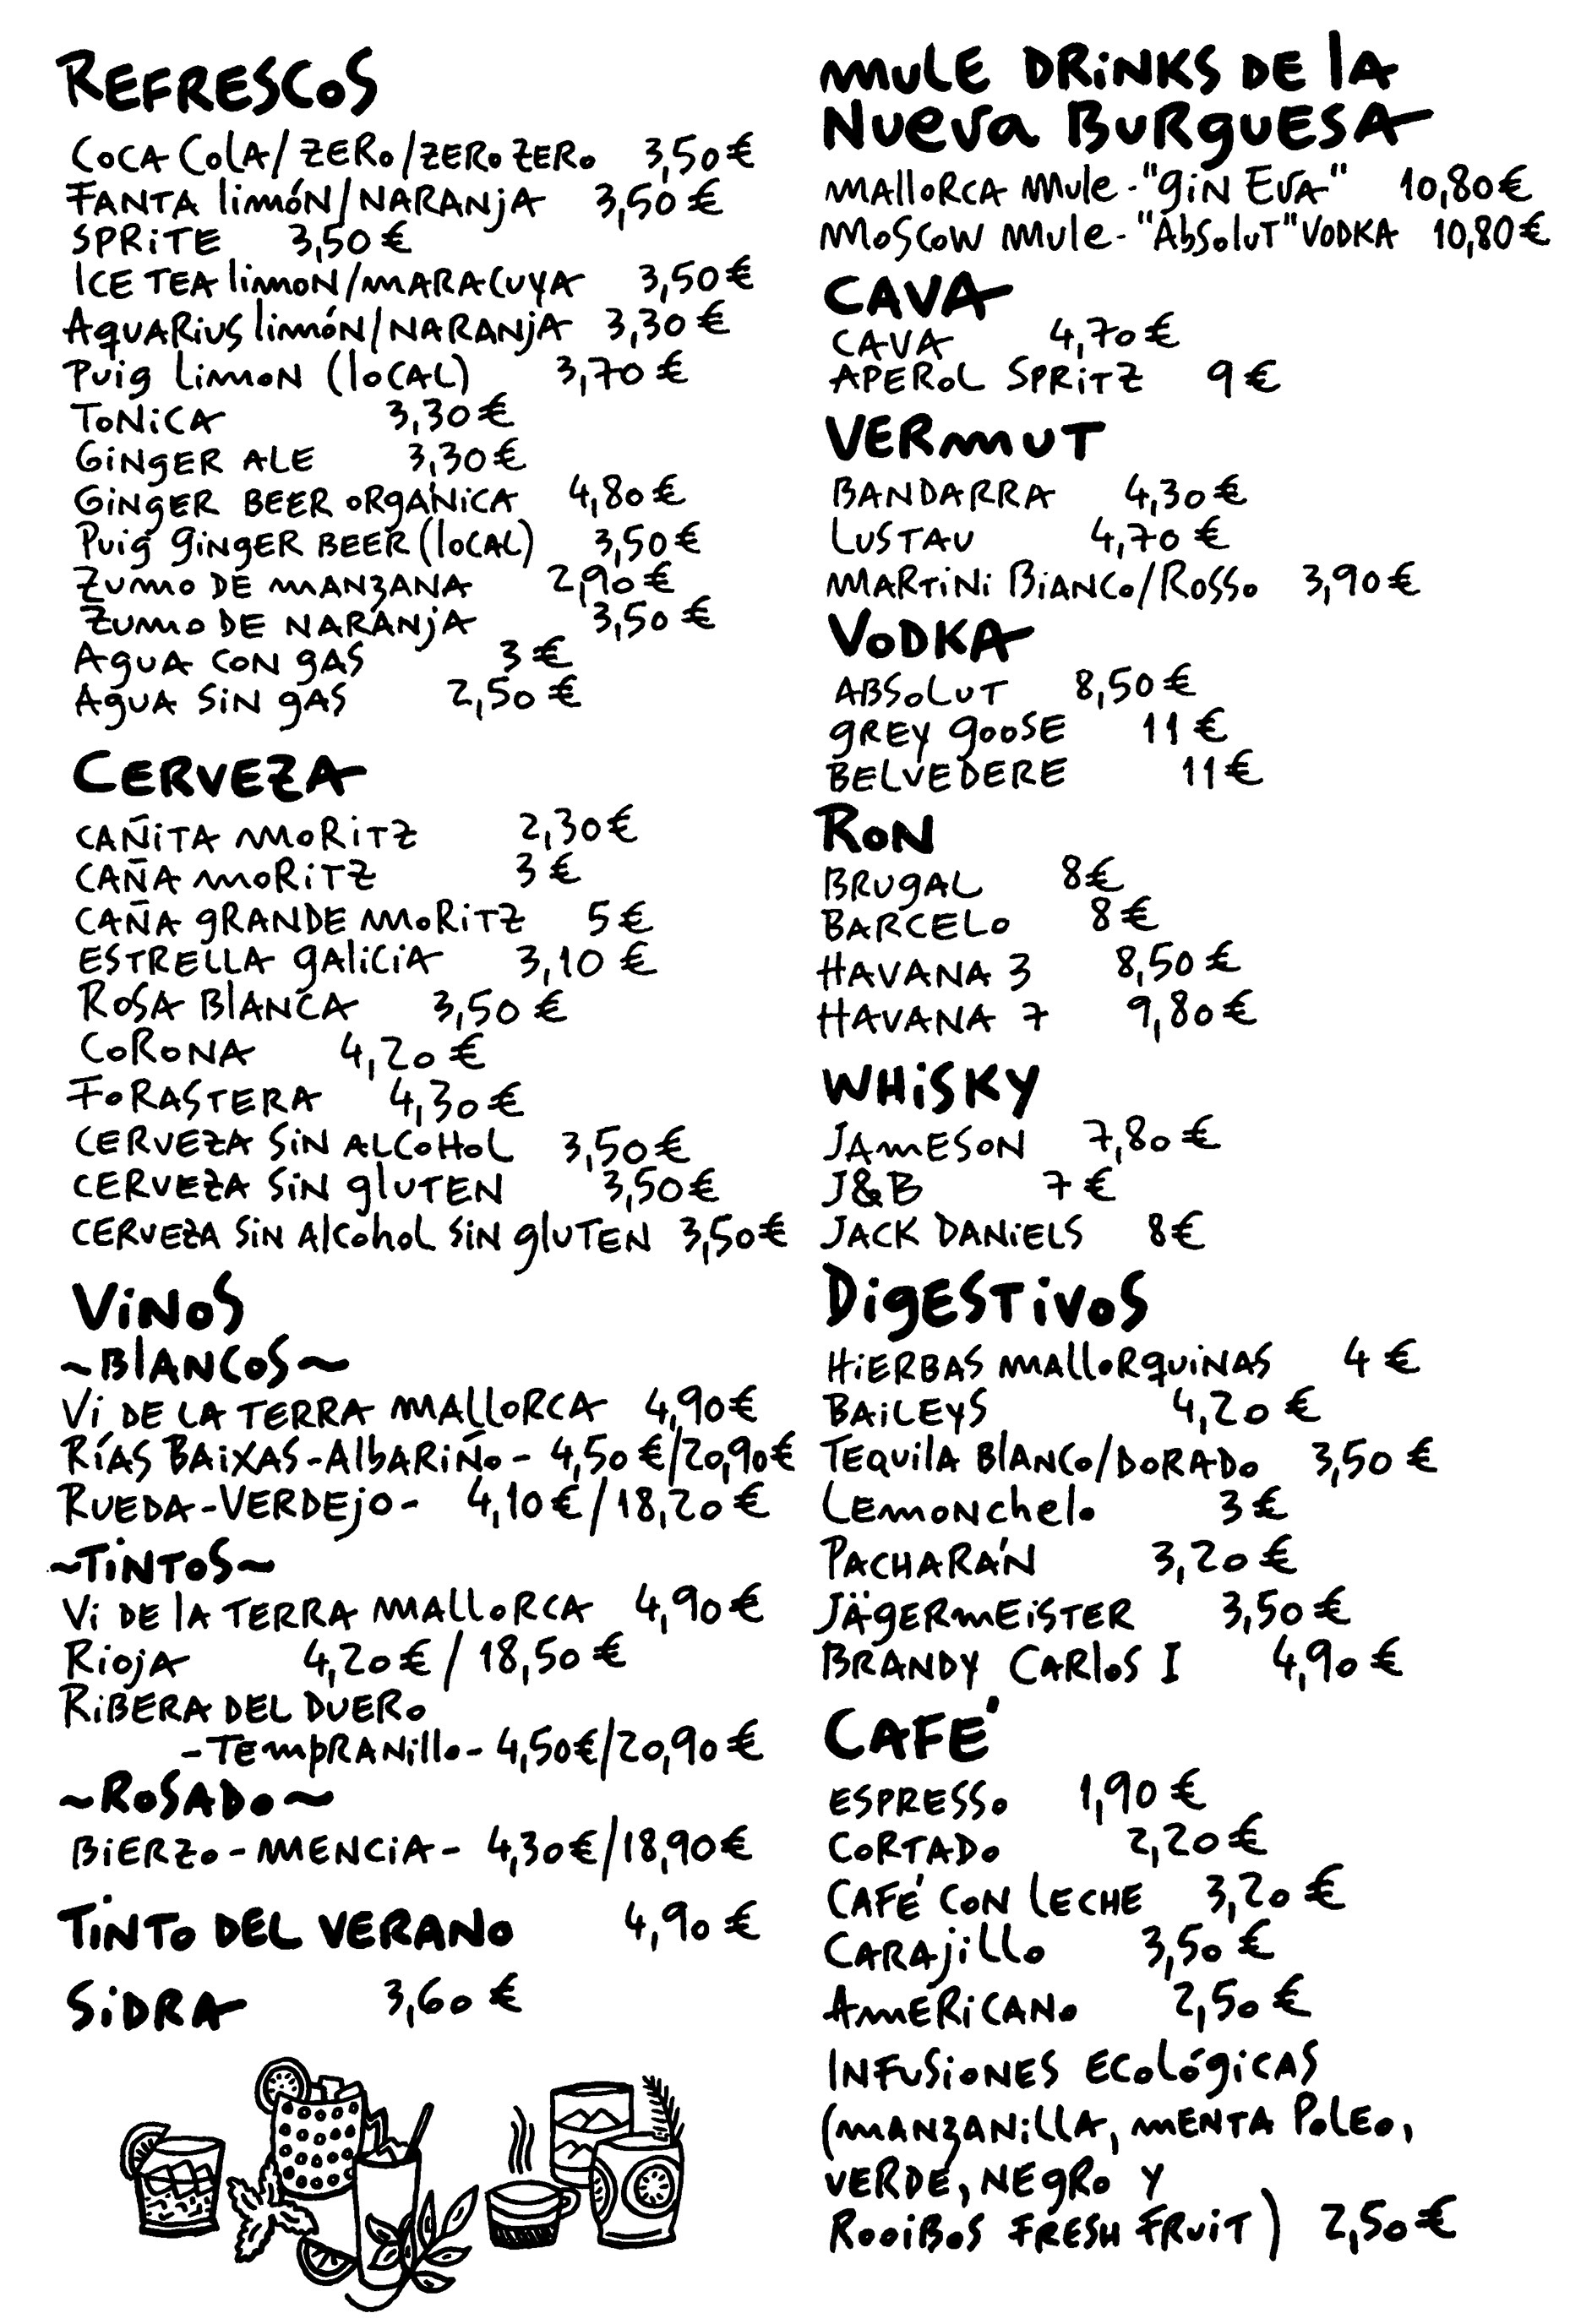 REFRESCOS
COCA COLA/ZERO/ZERO ZERO 3,50€
FANTA limóN/NARANJA 3,50€
SPRITE 3,50€
ICE TEA limoN/MARACUYA 3,50€
AquARius limóN/NARANJA 3,30€
Puig LimoN (loCAL) 3,70€
TONICA 3,30€
GINgER ALE 3,30€
GINgER BEER ORgANICA 4,80€
Puig giNgER BEER (loCAL) 3,50€
ZUMO DE MANZANA 2,90€
ZUMO DE NARANJA 3,50€
AgUA CON gAS 3€
AgUA SiN gAS 2,50€
CERVEZA
CAÑITA MORITZ 2,30€
CAÑA MORITZ 3€
CAÑA gRANDE MORITZ 5€
ESTRELLA gAliCiA 3,10€
ROSA BlANCA 3,50€
CORONA 4,20€
FORASTERA 4,30€
CERVEZA SiN ALCOHOL 3,50€
CERVEZA SiN glUTEN 3,50€
CERVEZA SiN AlcohoL SiN glUTEN 3,50€
ViNOS
~BlANCOS~
Vi DE LA TERRA MALLORCA 4,90€
RÍAS BAiXAS-AlbARiÑo- 4,50€/20,90€
RUEDA-VERDEjO- 4,10€/18,20€
~TiNTOS~
Vi DE lA TERRA MALLORCA 4,90€
RiojA 4,20€/18,50€
RiBERA DEL DUERO
-TEmpRANillo- 4,50€/20,90€
~ROSADO~
BiERZO-MENCiA- 4,30€/18,90€
TiNTO DEL VERANO 4,90€
SiDRA 3,60€
MULE DRiNKS DE lA
NUEVA BURgUESA
MAllORCA MulE-"giN EVA" 10,80€
MOSCOW MulE-"AbSoluT" VODKA 10,80€
CAVA
CAVA 4,70€
APEROL SPRiTZ 9€
VERMUT
BANDARRA 4,30€
LUSTAU 4,70€
MARTiNi BiANCO/ROSSO 3,90€
VODKA
ABSOLUT 8,50€
gREY gOOSE 11€
BELVEDERE 11€
RON
BRUgAL 8€
BARCELO 8€
HAVANA 3 8,50€
HAVANA 7 9,80€
WHiSKY
JAMESON 7,80€
J&B 7€
JACK DANiELS 8€
DigESTiVOS
HiERBAS MAllORquiNAS 4€
BAiLEYS 4,20€
TEquilA BlANCO/DORADO 3,50€
LEmoNchelo 3€
PACHARÁN 3,20€
JÄgERMEiSTER 3,50€
BRANDY CARloS I 4,90€
CAFÉ
ESPRESSO 1,90€
CORTADO 2,20€
CAFÉ CON LECHE 3,20€
CARAjillo 3,50€
AMERiCANO 2,50€
INFUSiONES ECOLógiCAS
(MANZANillA, MENTA POLEO,
VERDE, NEgRO Y
ROOiBOS FRESH FRUiT) 2,50€